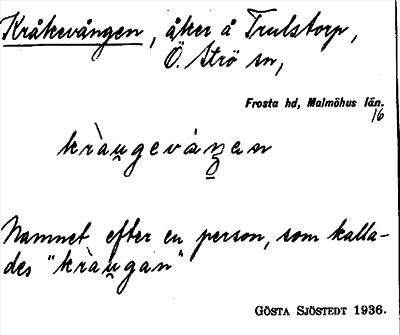 Kråkevången, åker å Trulstorp,
Ö. Strö sn,
Frosta hd, Malmöhus län.
16
kràu̯gevàŋ̲en
Namnet efter en person, som kalla-
des "kràu̯gan"
GÖSTA SJÖSTEDT 1936.